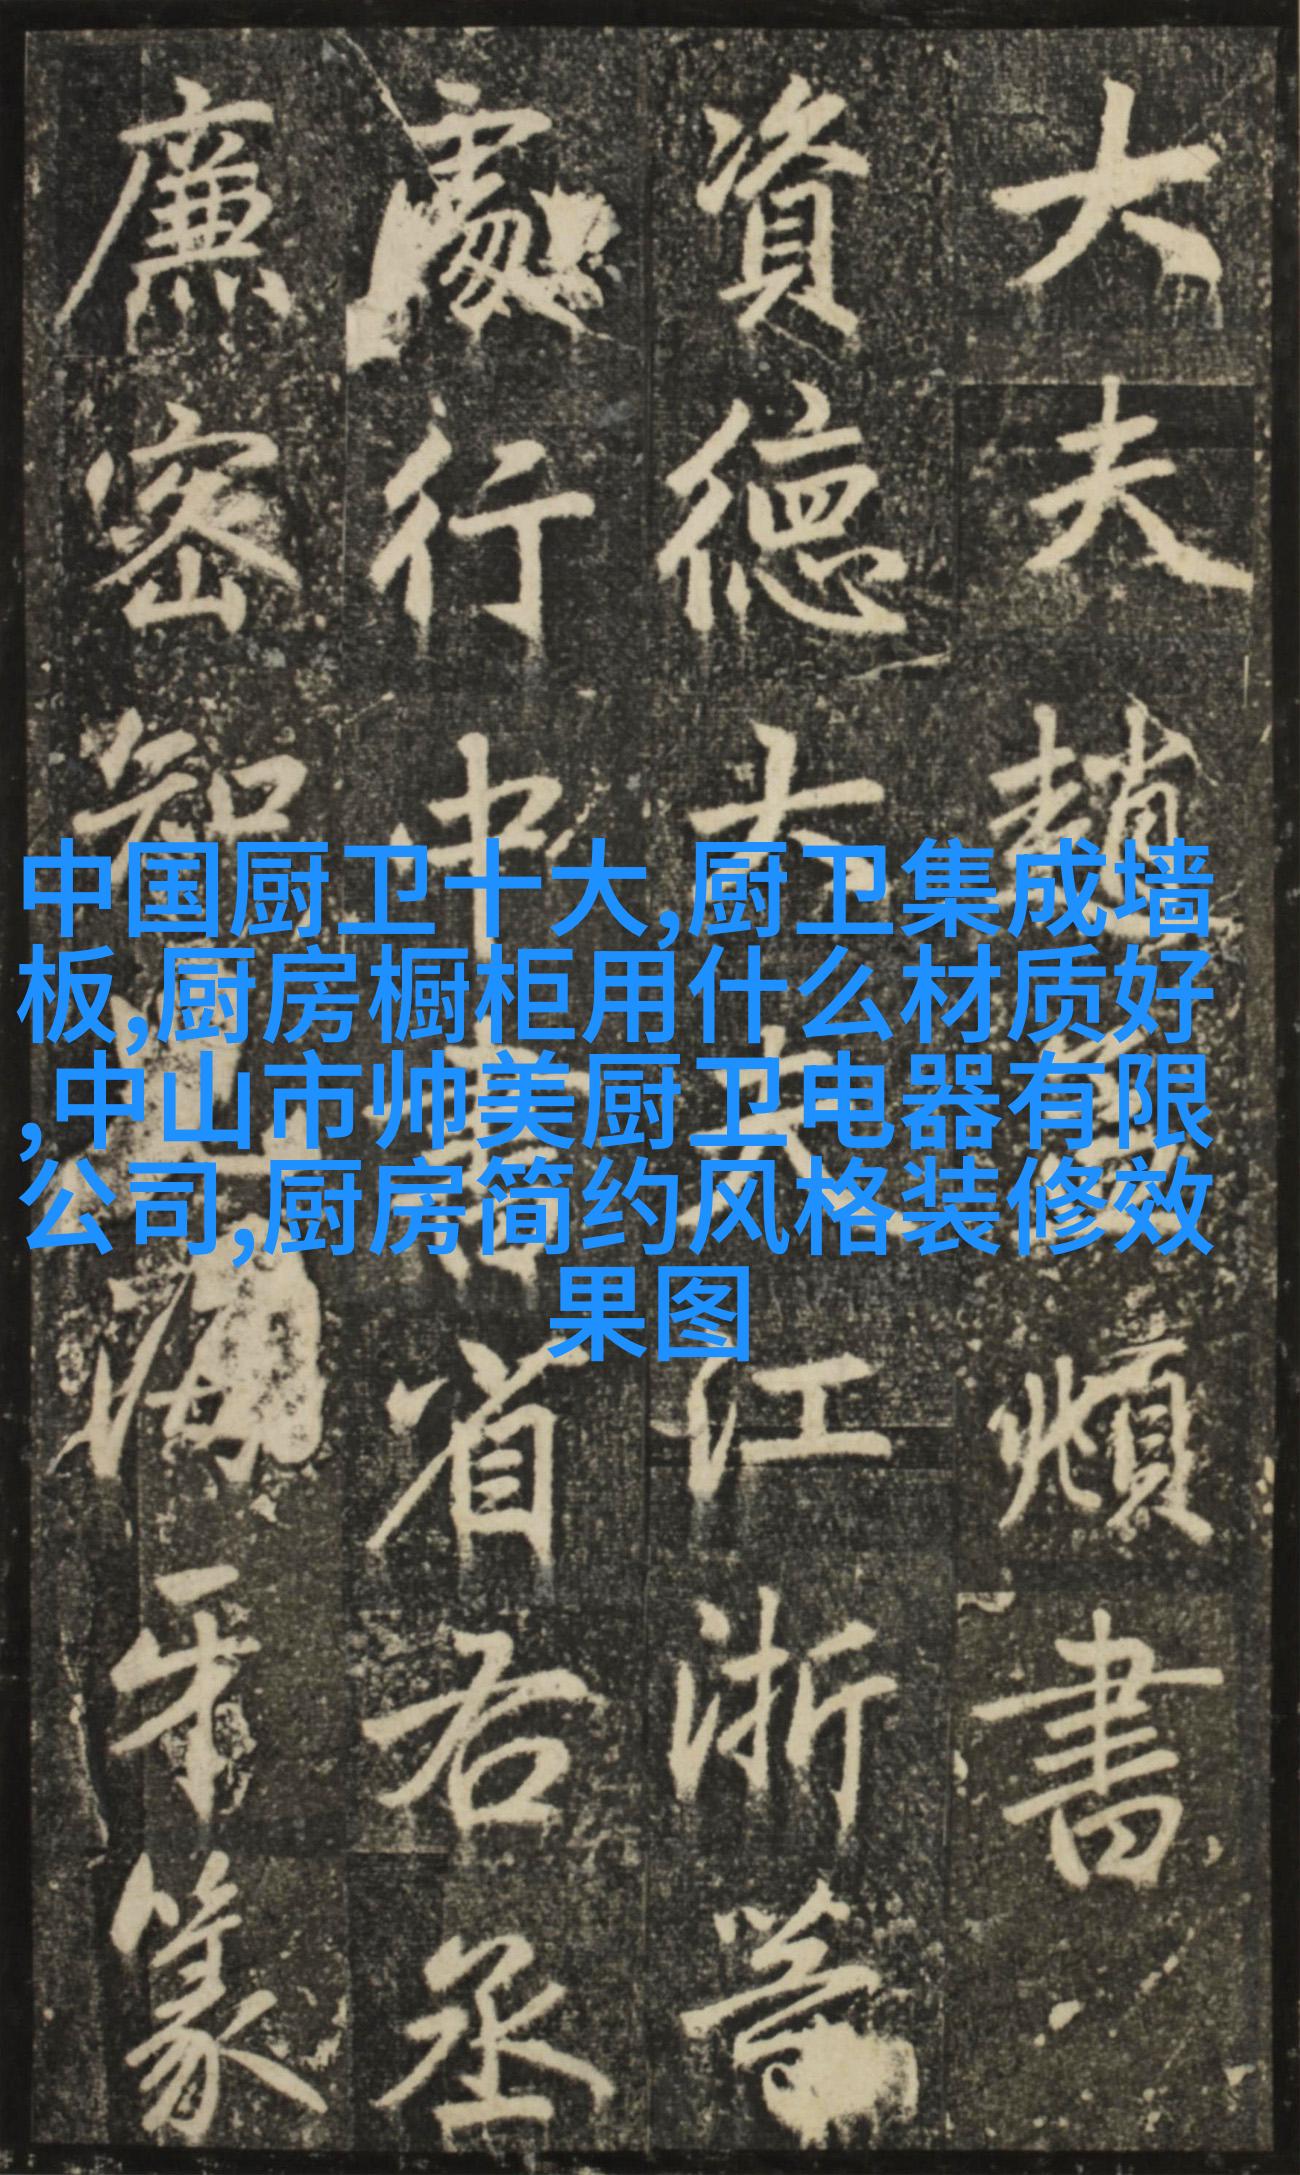 大夫趙孟頫書
資德大夫江浙等
處行中書省右丞
廉密知海牙篆
中国厨卫十大,厨卫集成墙
板,厨房橱柜用什么材质好
,中山市帅美厨卫电器有限
公司,厨房简约风格装修效
果图